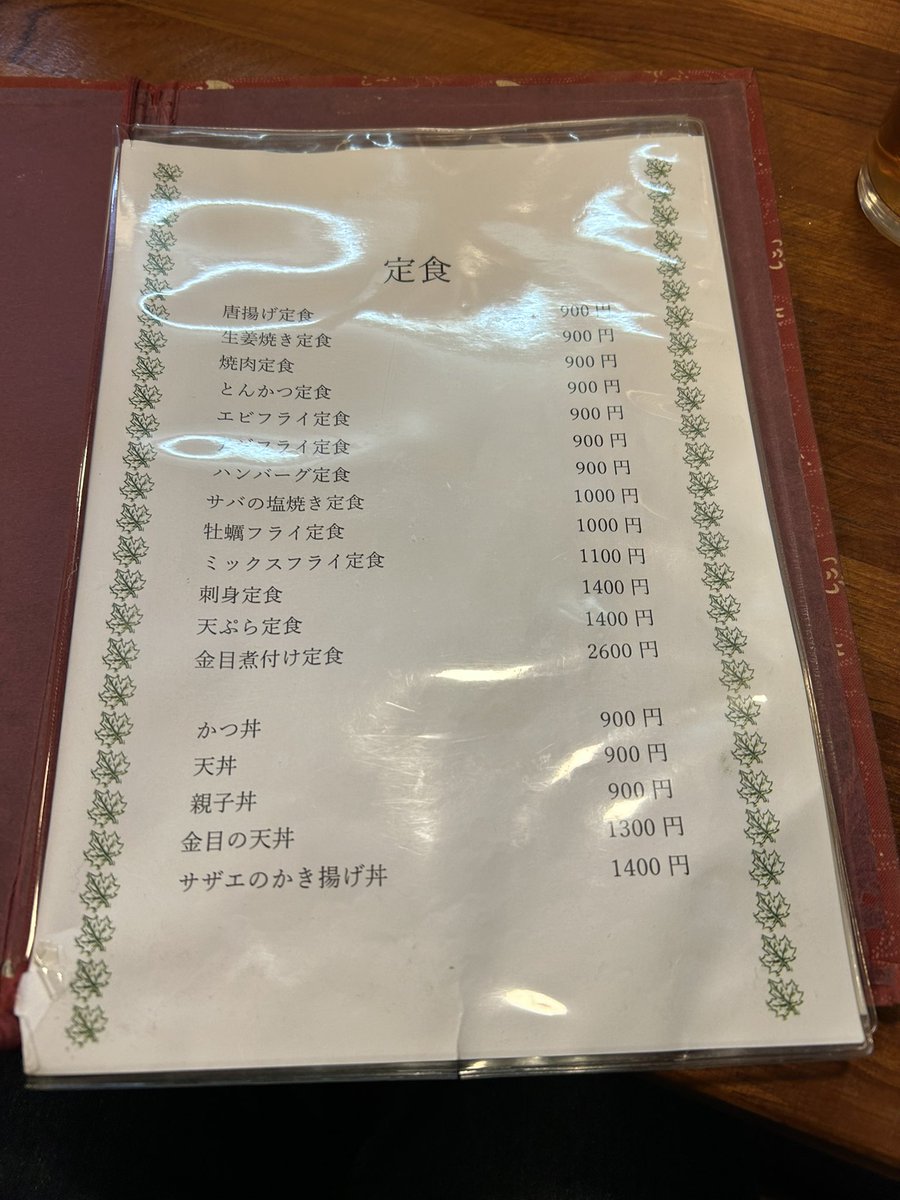 定食
唐揚げ定食 900 円
生姜焼き定食 900 円
焼肉定食 900 円
とんかつ定食 900 円
エビフライ定食 900 円
アジフライ定食 900 円
ハンバーグ定食 900 円
サバの塩焼き定食 1000 円
牡蠣フライ定食 1000 円
ミックスフライ定食 1100 円
刺身定食 1400 円
天ぷら定食 1400 円
金目煮付け定食 2600 円
かつ丼 900 円
天丼 900 円
親子丼 900 円
金目の天丼 1300 円
サザエのかき揚げ丼 1400 円